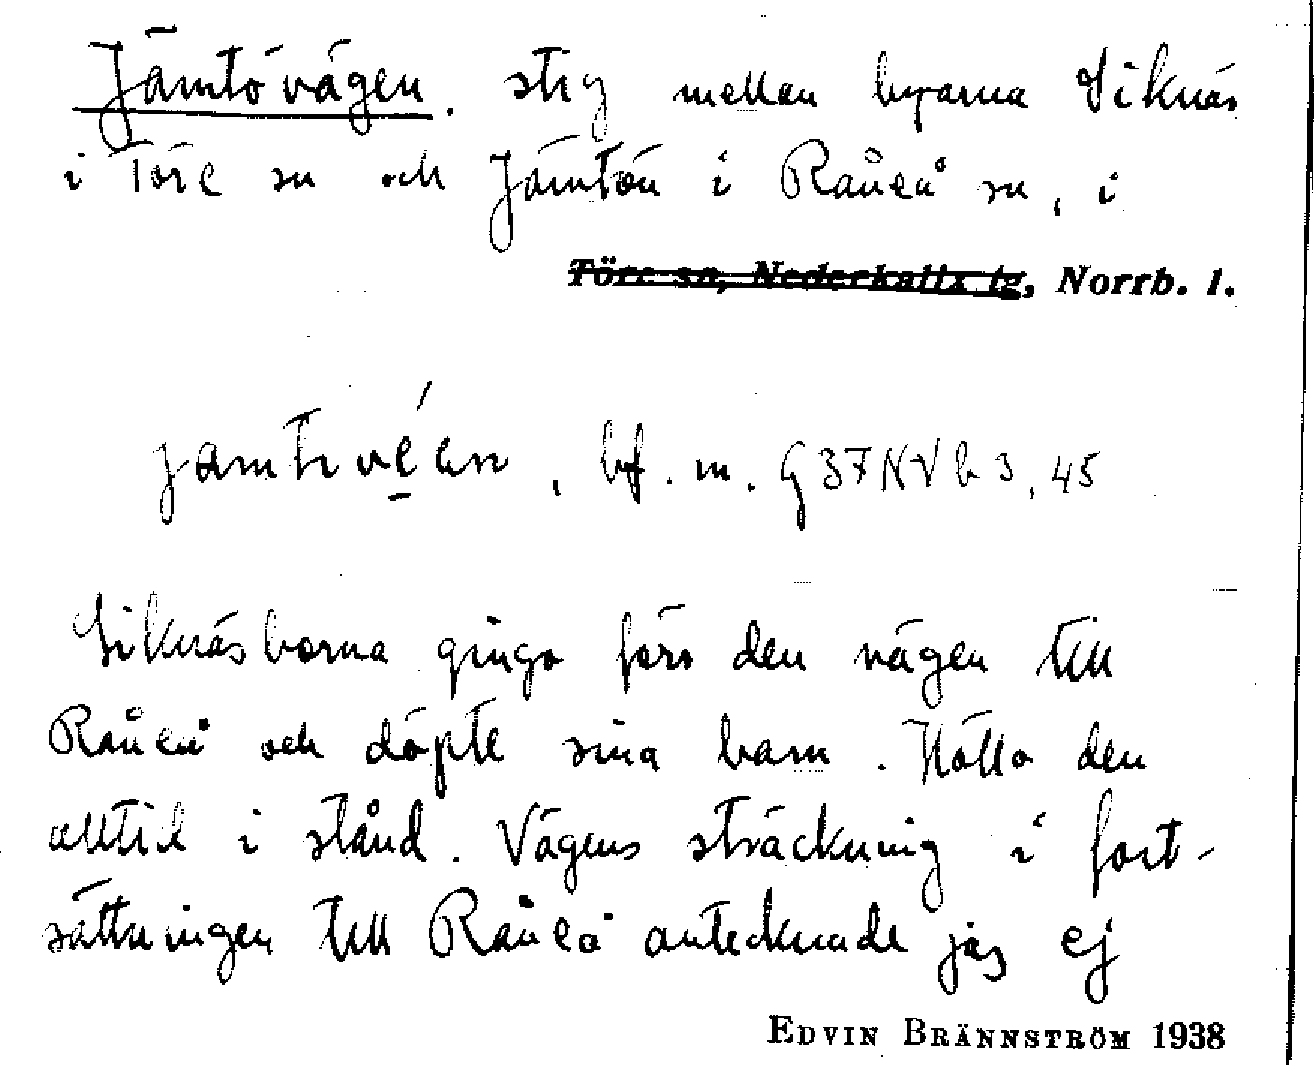 Jämtövägen. stig mellan byarna Siknäs
i Töre sn och Jämtön i Råneå sn, i
Töre sn, Nederkalix tg, Norrb. l.
bf. m. G37NVb3,45
Siknäsborna gingo förs den vägen till
Råneå och döpte sina barn. Höllo den
alltid i stånd. Vägens sträckning i fort-
sättningen till Råneå antecknade jag ej
EDVIN BRÄNNSTRÖM 1938